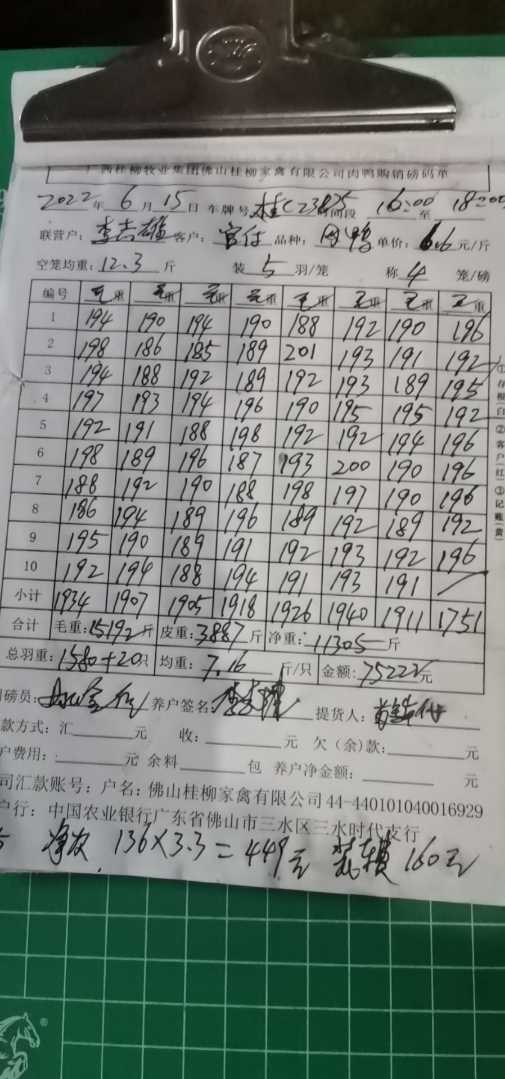 广西桂柳牧业集团佛山桂柳家禽有限公司肉鸭购销磅码单
2022年 6 月 15 日 车牌号 桂C 间段 16:00 至 18:00
联营户: 李志雄 客户: 官付 品种: 肉鸭 单价: 6.6 元/斤
空笼均重: 12.3 斤 装 5 羽/笼 称 4 笼/磅
编号 毛重 毛重 毛重 毛重 毛重 毛重 毛重 毛重
1 194 190 194 190 188 192 190 196
2 198 186 185 189 201 193 191 192
3 194 188 192 189 192 193 189 195
4 197 193 194 196 190 195 195 192
5 192 191 188 198 192 192 194 196
6 198 189 196 187 193 200 190 196
7 188 192 190 188 198 197 190 196
8 186 194 189 196 189 192 189 192
9 195 190 189 191 192 193 192 196
10 192 194 188 194 191 193 191
小计 1934 1907 1905 1918 1926 1940 1911 1751
合计 毛重: 15192 斤 皮重: 3887 斤 净重: 11305 斤
总羽重: 1580+20只 均重: 7.16 斤/只 金额: 75222元
磅员: 养户签名: 提货人:
款方式: 汇 元 收: 元 欠(余)款: 元
户费用: 元 余料 包 养户净金额: 元
司汇款账号: 户名: 佛山桂柳家禽有限公司 44-440101040016929
户行: 中国农业银行广东省佛山市三水区三水时代支行
136×3.3=449元 160元
①存根(白)②客户(红)③记账(黄)